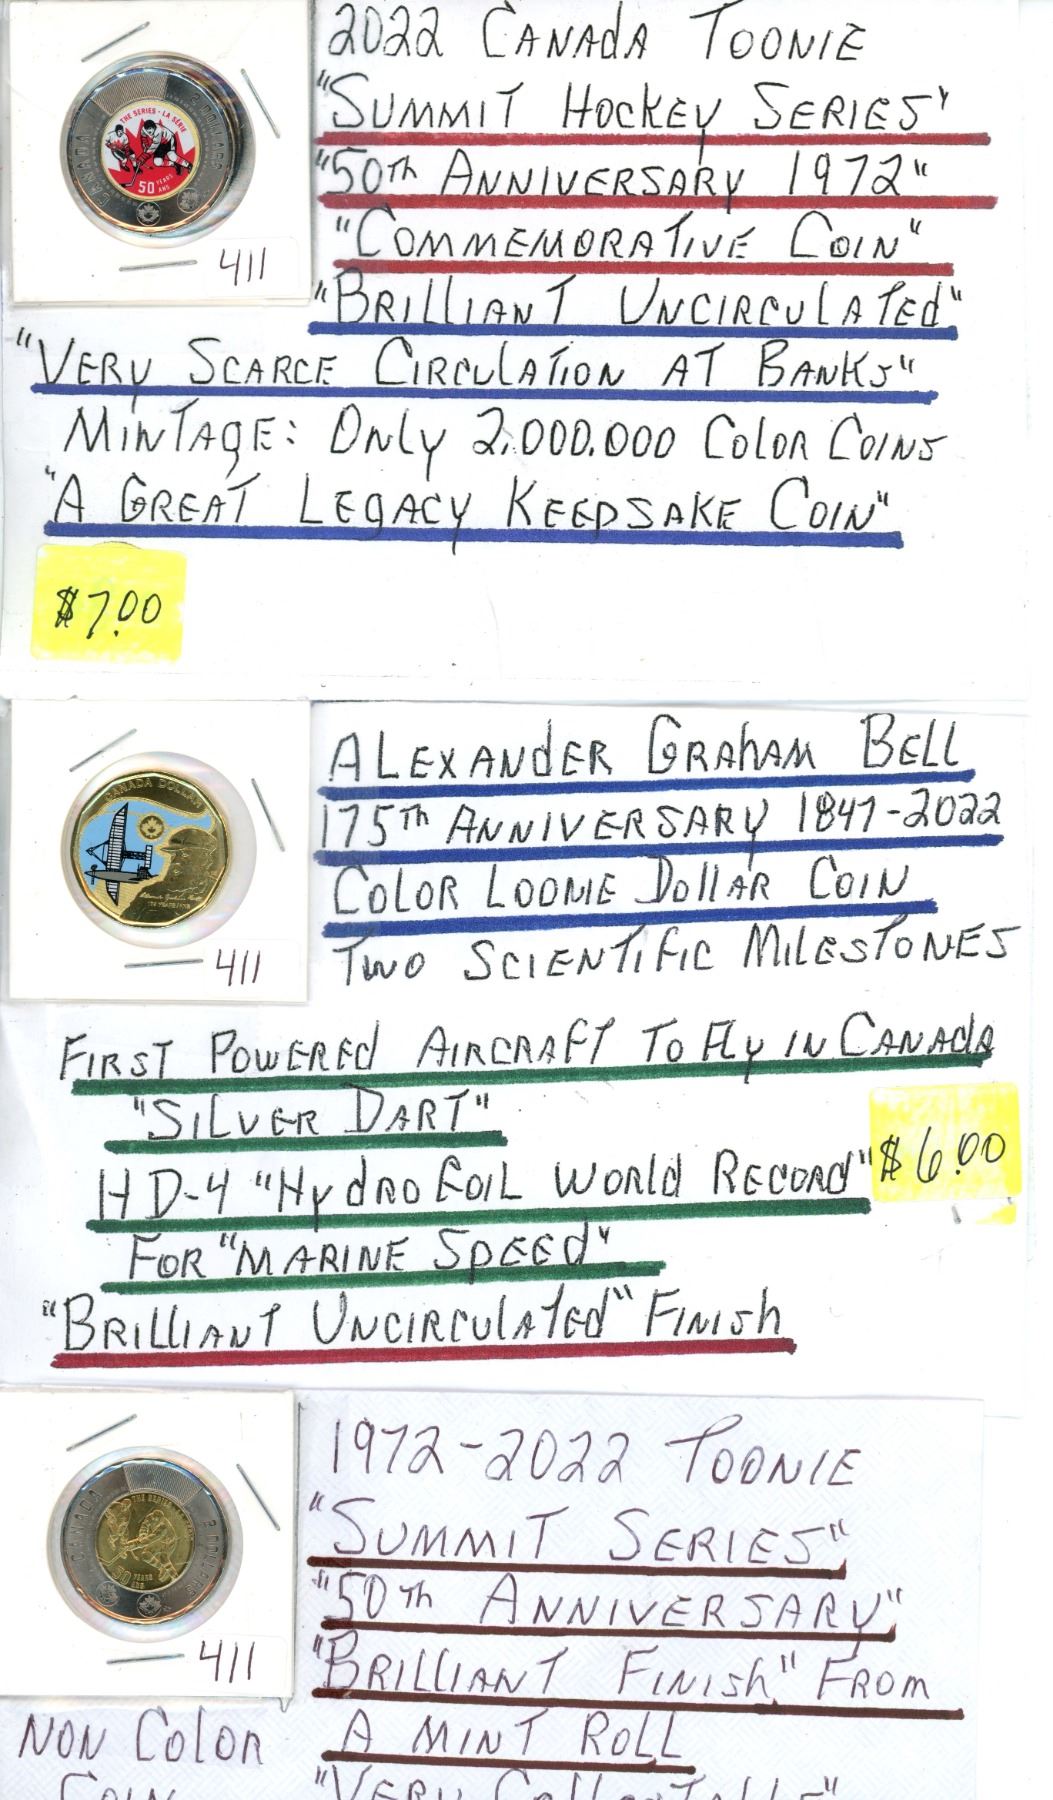 2022 CANADA TOONIE
"SUMMIT HOCKEY SERIES"
"50th ANNIVERSARY 1972"
"COMMEMORATIVE COIN"
"BRILLIANT UNCIRCULATED"
"VERY SCARCE CIRCULATION AT BANKS"
MINTAGE: ONLY 2,000.000 COLOR COINS
"A GREAT LEGACY KEEPSAKE COIN"
$7.00
CANADA 2 DOLLARS
THE SERIES - LA SÉRIE
50 YEARS ANS
411
ALEXANDER GRAHAM BELL
175th ANNIVERSARY 1847-2022
COLOR LOONIE DOLLAR COIN
TWO SCIENTIFIC MILESTONES
FIRST POWERED AIRCRAFT TO FLY IN CANADA
"SILVER DART"
HD-4 "HYDROFOIL WORLD RECORD"
FOR "MARINE SPEED"
"BRILLIANT UNCIRCULATED" FINISH
$6.00
CANADA DOLLAR
411
1972-2022 TOONIE
"SUMMIT SERIES"
"50th ANNIVERSARY"
"BRILLIANT FINISH" FROM
A MINT ROLL
CANADA 2 DOLLARS
THE SERIES
50 YEARS ANS
411
NON COLOR
COIN
"VERY COLLECTABLE"